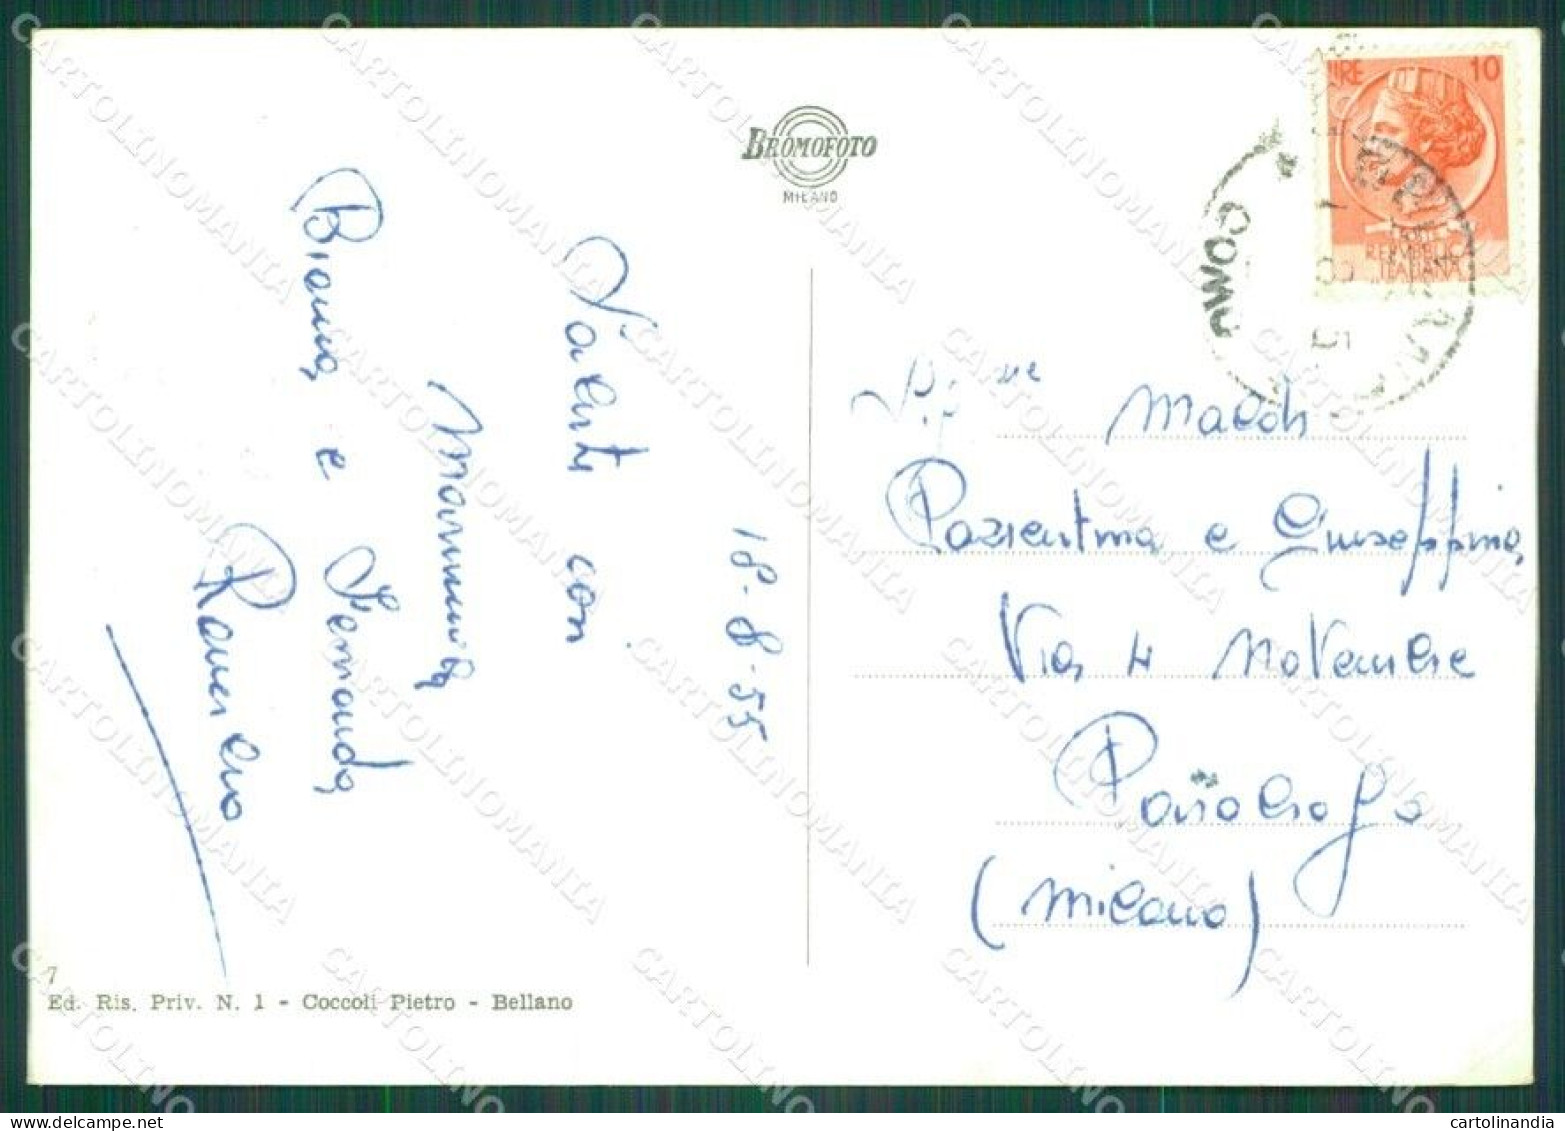 BROMOFOTO
MILANO
LIRE 10
POSTE
REPUBBLICA
ITALIANA
COMO
18-8-55
Saluti con
Mammina
Bianca e Fernanda
Romilda
Maldi
Pazientina e Giuseppina
Via 4 Novembre
(Milano)
7
Ed. Ris. Priv. N. 1 - Coccoli Pietro - Bellano
CARTOLINOMANIA
cartolinandia